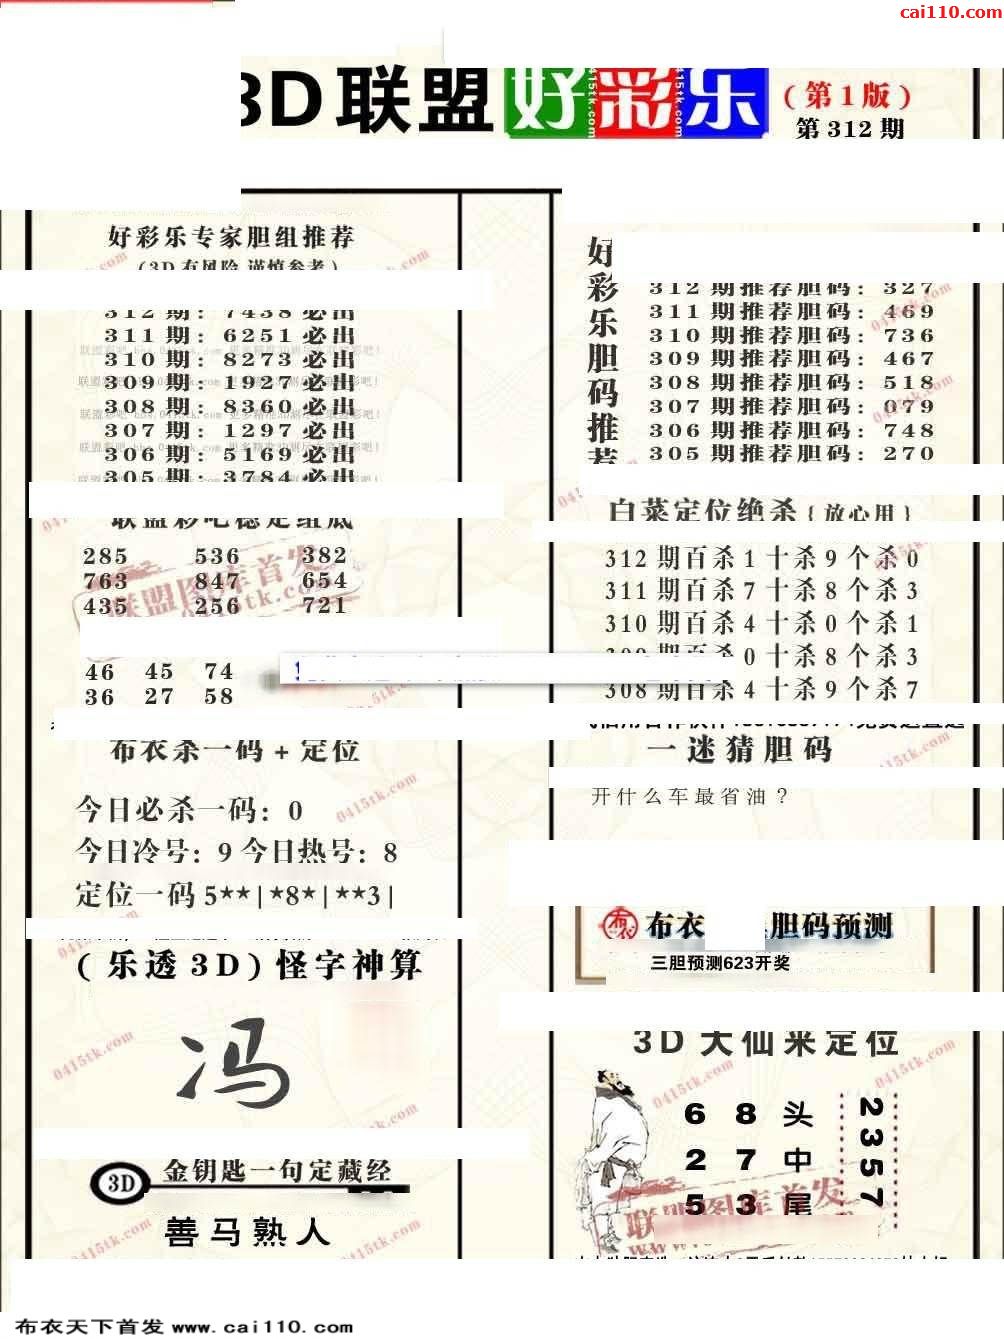 cai110.com
3D联盟 好彩乐 (第1版)
第312期
好彩乐专家胆组推荐
(3D有风险 谨慎参考)
312期: 7438必出
311期: 6251必出
310期: 8273必出
309期: 1927必出
308期: 8360必出
307期: 1297必出
306期: 5169必出
305期: 3784必出
联盟彩吧稳定组底
285 536 382
763 847 654
435 256 721
46 45 74
36 27 58
布衣杀一码+定位
今日必杀一码: 0
今日冷号: 9 今日热号: 8
定位一码 5**|*8*|**3|
(乐透3D)怪字神算
冯
3D 金钥匙一句定藏经
善马熟人
好彩乐胆码推荐
312期推荐胆码: 327
311期推荐胆码: 469
310期推荐胆码: 736
309期推荐胆码: 467
308期推荐胆码: 518
307期推荐胆码: 079
306期推荐胆码: 748
305期推荐胆码: 270
白菜定位绝杀{放心用}
312期百杀1十杀9个杀0
311期百杀7十杀8个杀3
310期百杀4十杀0个杀1
309期百杀0十杀8个杀3
308期百杀4十杀9个杀7
一迷猜胆码
开什么车最省油？
布衣 胆码预测
三胆预测623开奖
3D大仙来定位
6 8 头
2 7 中
5 3 尾
2357
联盟图库首发
0415tk.com
布衣天下首发 www.cai110.com